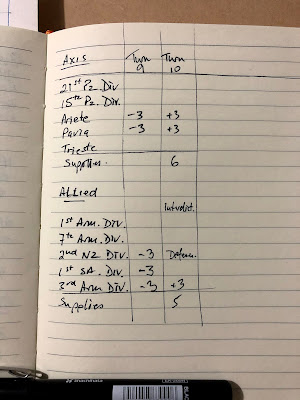 AXIS Turn 9 Turn 10
21st Pz. Div
15th Pz. Div.
Ariete -3 +3
Pavia -3 +3
Trieste
Supplies 6
ALLIED
Interdict.
1st Arm. Div.
7th Arm. Div.
2nd NZ Div. -3 Defence.
1st SA. Div. -3
3rd Arm Div. -3 +3
Supplies 5